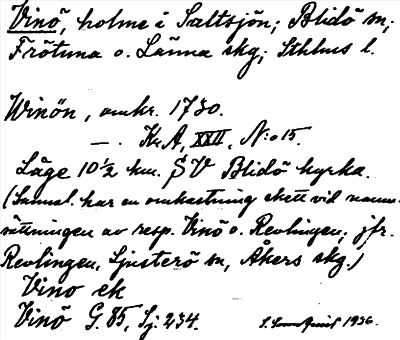 Vinö, holme i Saltsjön; Blidö sn;
Frötuna o. Länna skg; Sthlms l.
Winön, omkr. 1730.
—. Kr.A, XXII, N:o 15.
Läge 10½ km. SV Blidö kyrka.
(Sannol. har en omkastning skett vid namn-
sättningen av resp. Vinö o. Revlingen; jfr.
Revlingen, Ljusterö sn, Åkers skg.)
Vino ek
Vinö G. 85, Sj. 234.
1936.